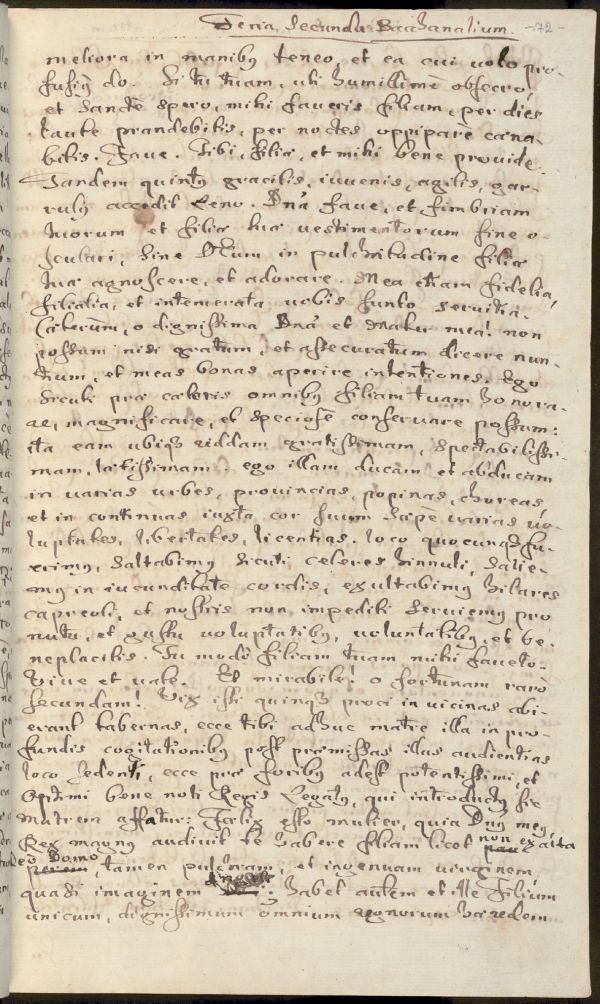 Feria Secunda Bacchanalium. -72-
meliora in manibus teneo, et ea cui volo pro-
fusius do. Si tu tuam, uti humillimè obsecro,
et sanctè spero, mihi faveris filiam, per dies
lautè prandebitis, per noctes opiparè caena-
bitis. Fave. Tibi, filiae, et mihi bene provide.
Tandem quintus gracilis, iuvenis, agilis, gar-
rulus accedit leno. Dna fave, et fimbriam
tuorum et filiae tuae vestimentorum sine o-
sculari, sine Deum in pulchritudine filiae
tuae agnoscere, et adorare. Mea etiam fidelia,
filialia, et intemerata vobis sunto servitia.
Caeterùm, o dignissima Dna et Mater mea! non
possum nisi gratum, et assecuratum dicere nun-
tium, et meas bonas aperire intentiones. Ego
sicuti prae caeteris omnibus filiam tuam honora-
re, magnificare, et speciosè conservare possum:
ita eam ubique reddam gratissimam, spectabilissi-
mam, laetissimam. ego illam ducam et abducam
in varias urbes, provincias, popinas, choreas
et in continuas iuxta cor suum saepè varias vo-
luptates, libertates, licentias. loco quocunque fu-
erimus, saltabimus sicuti celeres hinnuli, salie-
mus in iucunditate cordis, exultabimus hilares
capreoli, et nostris non impediti serviemus pro
nutu, et gustu voluptatibus, voluntatibus, et be-
neplacitis. Tu modò filiam tuam mihi faveto.
Vive et vale. Et mirabile! o fortunam rarò
secundam! Vix isti quinque proci in vicinas abi-
erant tabernas, ecce tibi adhuc matre illa in pro-
fundis cogitationibus post praemissas illas audientias
loco sedenti, ecce prae foribus adest potentissimi, et
optimi bene noti Regis Legatus, qui introductus sic
matrem affatur: Felix esto mulier, quia Dnus meus,
Rex magnus audivit te habere filiam licet non ex alta
eo Domo, tamen pulchram, et ingenuam virginem
quasi imaginem. habet autem et ille Filium
unicum, dignissimum omnium regnorum haeredem